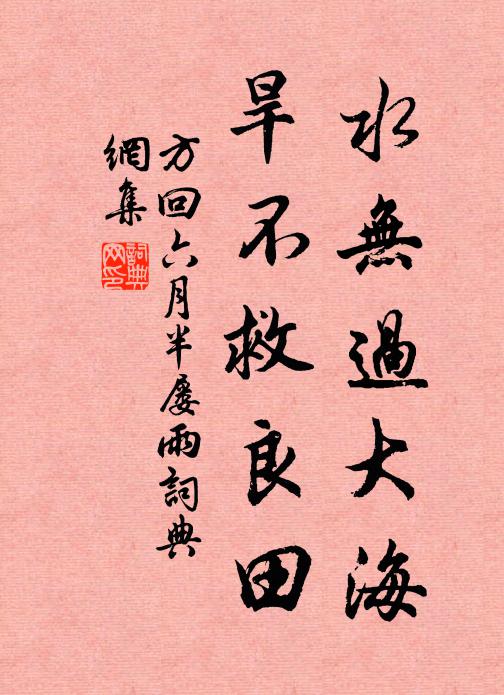 水無過大海
旱不救良田
方回六月半屡雨詞典
網集
詞典
网印